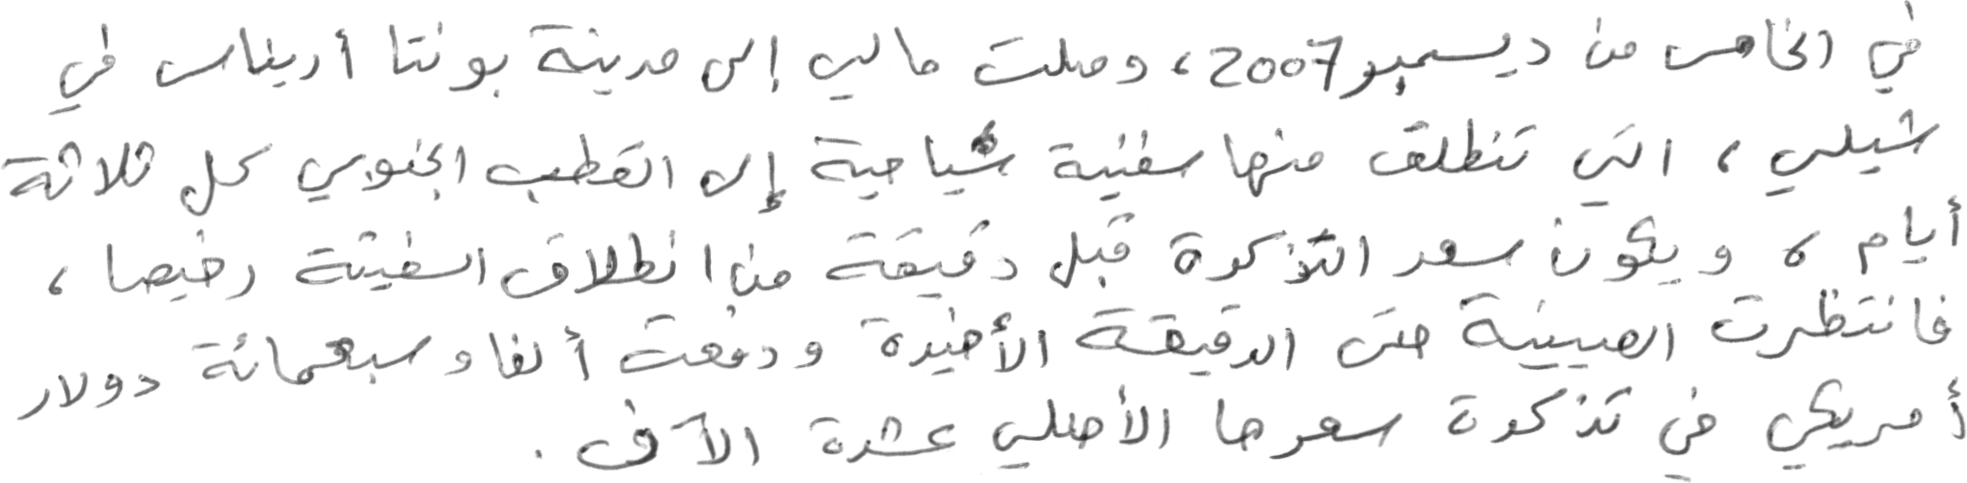 في الخامس من ديسمبر 2007، وصلت مالي إلى مدينة بونتا أريناس في
شيلي، التي تنطلق منها سفينة سياحية إلى القطب الجنوبي كل ثلاثة
أيام، ويكون سعر التذكرة قبل دقيقة من انطلاق السفينة رخيصا،
فانتظرت الصينية حتى الدقيقة الأخيرة ودفعت ألفا وسبعمائة دولار
أمريكي في تذكرة سعرها الأصلي عشرة آلاف.